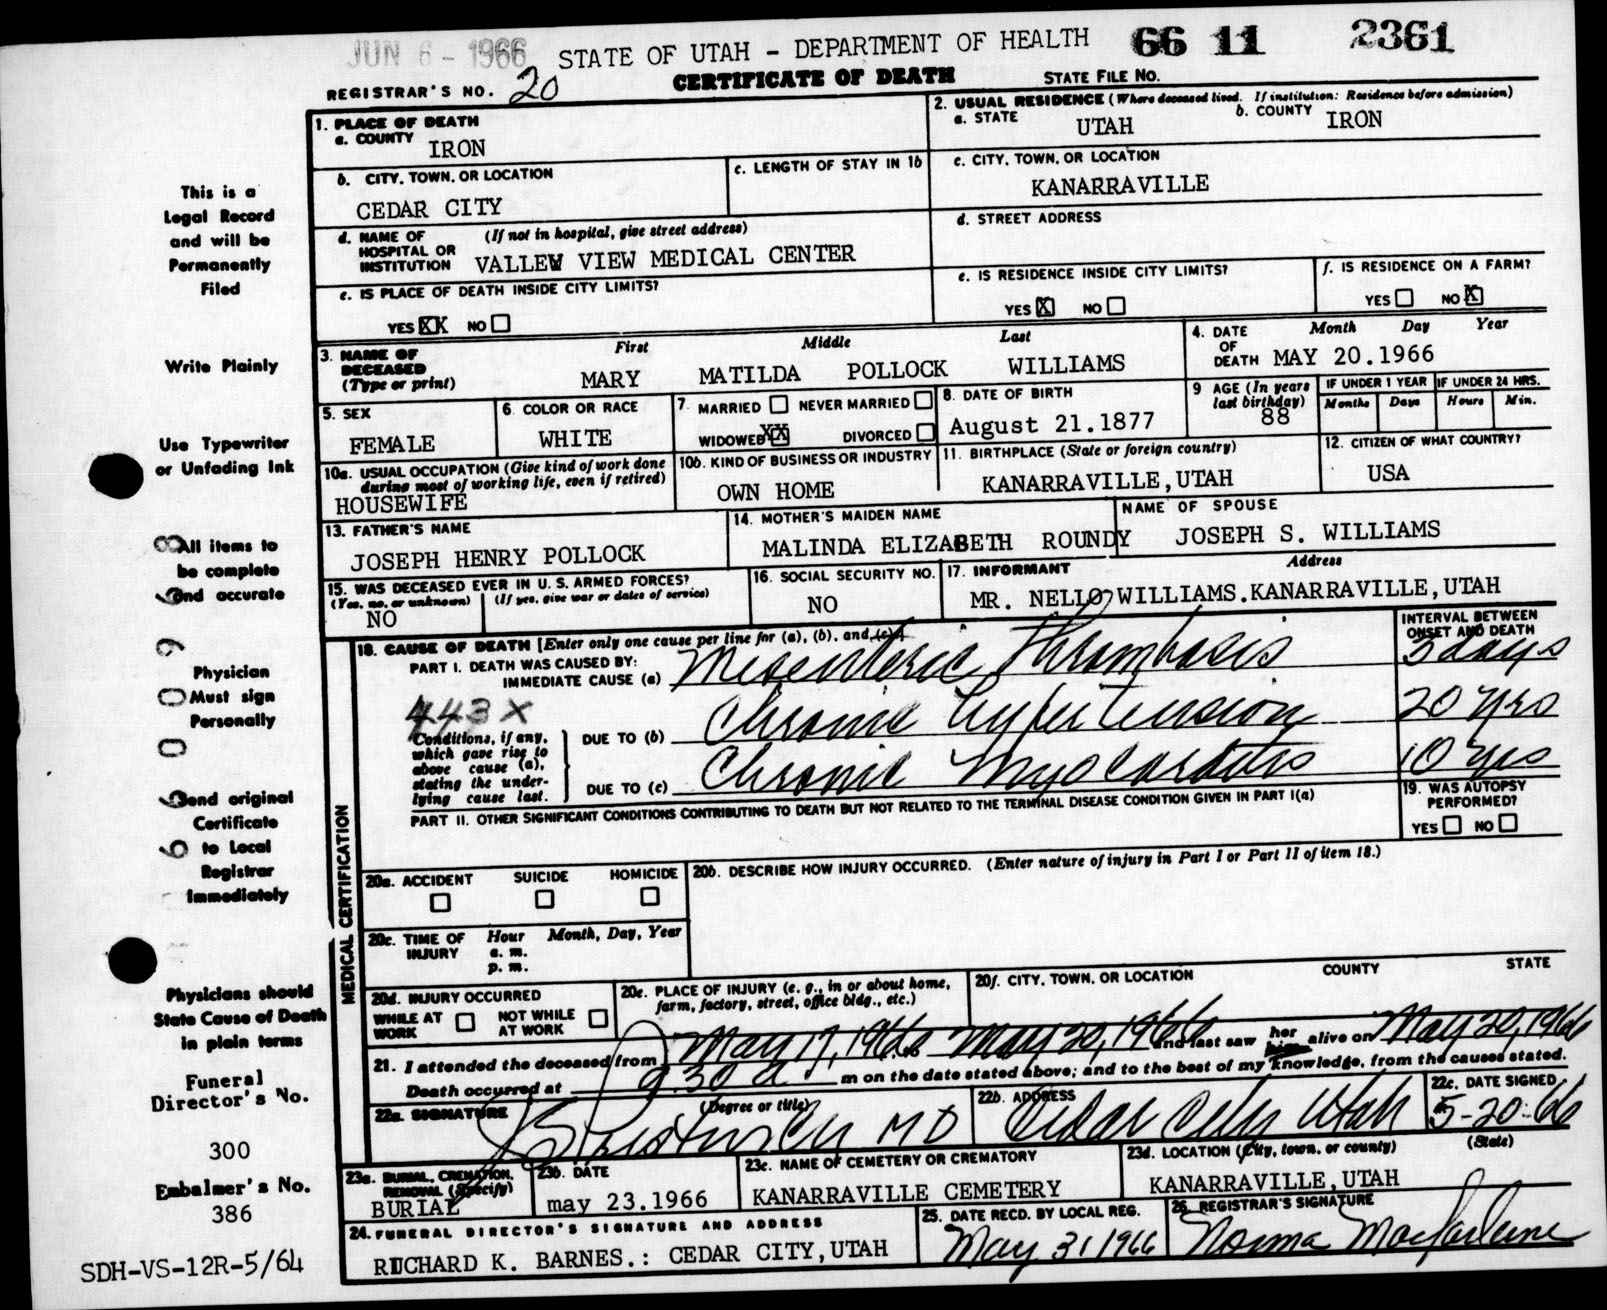 JUN 6 - 1966 STATE OF UTAH - DEPARTMENT OF HEALTH 66 11 2361
REGISTRAR'S NO. 20 CERTIFICATE OF DEATH STATE FILE NO.
1. PLACE OF DEATH
a. COUNTY IRON
2. USUAL RESIDENCE (Where deceased lived. If institution: Residence before admission)
a. STATE UTAH b. COUNTY IRON
b. CITY, TOWN, OR LOCATION CEDAR CITY
c. LENGTH OF STAY IN 1b
c. CITY, TOWN, OR LOCATION
KANARRAVILLE
d. NAME OF HOSPITAL OR INSTITUTION (If not in hospital, give street address)
VALLEW VIEW MEDICAL CENTER
d. STREET ADDRESS
e. IS PLACE OF DEATH INSIDE CITY LIMITS?
YES XX NO
e. IS RESIDENCE INSIDE CITY LIMITS?
YES X NO
f. IS RESIDENCE ON A FARM?
YES NO X
3. NAME OF DECEASED (Type or print)
First Middle Last
MARY MATILDA POLLOCK WILLIAMS
4. DATE OF DEATH Month Day Year
MAY 20.1966
5. SEX
FEMALE
6. COLOR OR RACE
WHITE
7. MARRIED NEVER MARRIED
WIDOWED XX DIVORCED
8. DATE OF BIRTH
August 21.1877
9 AGE (In years last birthday)
88
IF UNDER 1 YEAR IF UNDER 24 HRS.
Months Days Hours Min.
10a. USUAL OCCUPATION (Give kind of work done during most of working life, even if retired)
HOUSEWIFE
10b. KIND OF BUSINESS OR INDUSTRY
OWN HOME
11. BIRTHPLACE (State or foreign country)
KANARRAVILLE,UTAH
12. CITIZEN OF WHAT COUNTRY?
USA
13. FATHER'S NAME
JOSEPH HENRY POLLOCK
14. MOTHER'S MAIDEN NAME
MALINDA ELIZABETH ROUNDY
NAME OF SPOUSE
JOSEPH S. WILLIAMS
15. WAS DECEASED EVER IN U. S. ARMED FORCES?
(Yes, no, or unknown) (If yes, give war or dates of service)
NO
16. SOCIAL SECURITY NO.
NO
17. INFORMANT Address
MR. NELLO WILLIAMS.KANARRAVILLE,UTAH
MEDICAL CERTIFICATION
18. CAUSE OF DEATH [Enter only one cause per line for (a), (b), and (c).]
PART I. DEATH WAS CAUSED BY:
IMMEDIATE CAUSE (a) Mesenteric Thrombosis
INTERVAL BETWEEN ONSET AND DEATH
3 days
443X
Conditions, if any, which gave rise to above cause (a), stating the underlying cause last.
DUE TO (b) Chronic hypertension 20 yrs
DUE TO (c) Chronic Myocarditis 10 yrs
PART II. OTHER SIGNIFICANT CONDITIONS CONTRIBUTING TO DEATH BUT NOT RELATED TO THE TERMINAL DISEASE CONDITION GIVEN IN PART I(a)
19. WAS AUTOPSY PERFORMED?
YES NO
20a. ACCIDENT SUICIDE HOMICIDE
20b. DESCRIBE HOW INJURY OCCURRED. (Enter nature of injury in Part I or Part II of item 18.)
20c. TIME OF INJURY Hour Month, Day, Year
a. m.
p. m.
20d. INJURY OCCURRED
WHILE AT WORK NOT WHILE AT WORK
20e. PLACE OF INJURY (e. g., in or about home, farm, factory, street, office bldg., etc.)
20f. CITY, TOWN, OR LOCATION COUNTY STATE
21. I attended the deceased from May 17, 1966 May 20, 1966 and last saw her him alive on May 20, 1966
Death occurred at 9:30 a m on the date stated above; and to the best of my knowledge, from the causes stated.
22a. SIGNATURE (Degree or title)
MD
22b. ADDRESS
Cedar City Utah
22c. DATE SIGNED
5-20-66
23a. BURIAL, CREMATION, REMOVAL (Specify)
BURIAL
23b. DATE
may 23.1966
23c. NAME OF CEMETERY OR CREMATORY
KANARRAVILLE CEMETERY
23d. LOCATION (City, town, or county) (State)
KANARRAVILLE,UTAH
24. FUNERAL DIRECTOR'S SIGNATURE AND ADDRESS
RICHARD K. BARNES.: CEDAR CITY,UTAH
25. DATE RECD. BY LOCAL REG.
May 31 1966
26. REGISTRAR'S SIGNATURE
Norma Macfarlane
This is a
Legal Record
and will be
Permanently
Filed
Write Plainly
Use Typewriter
or Unfading Ink
All items to
be complete
and accurate
Physician
Must sign
Personally
Send original
Certificate
to Local
Registrar
Immediately
Physicians should
State Cause of Death
in plain terms
Funeral
Director's No.
300
Embalmer's No.
386
SDH-VS-12R-5/64